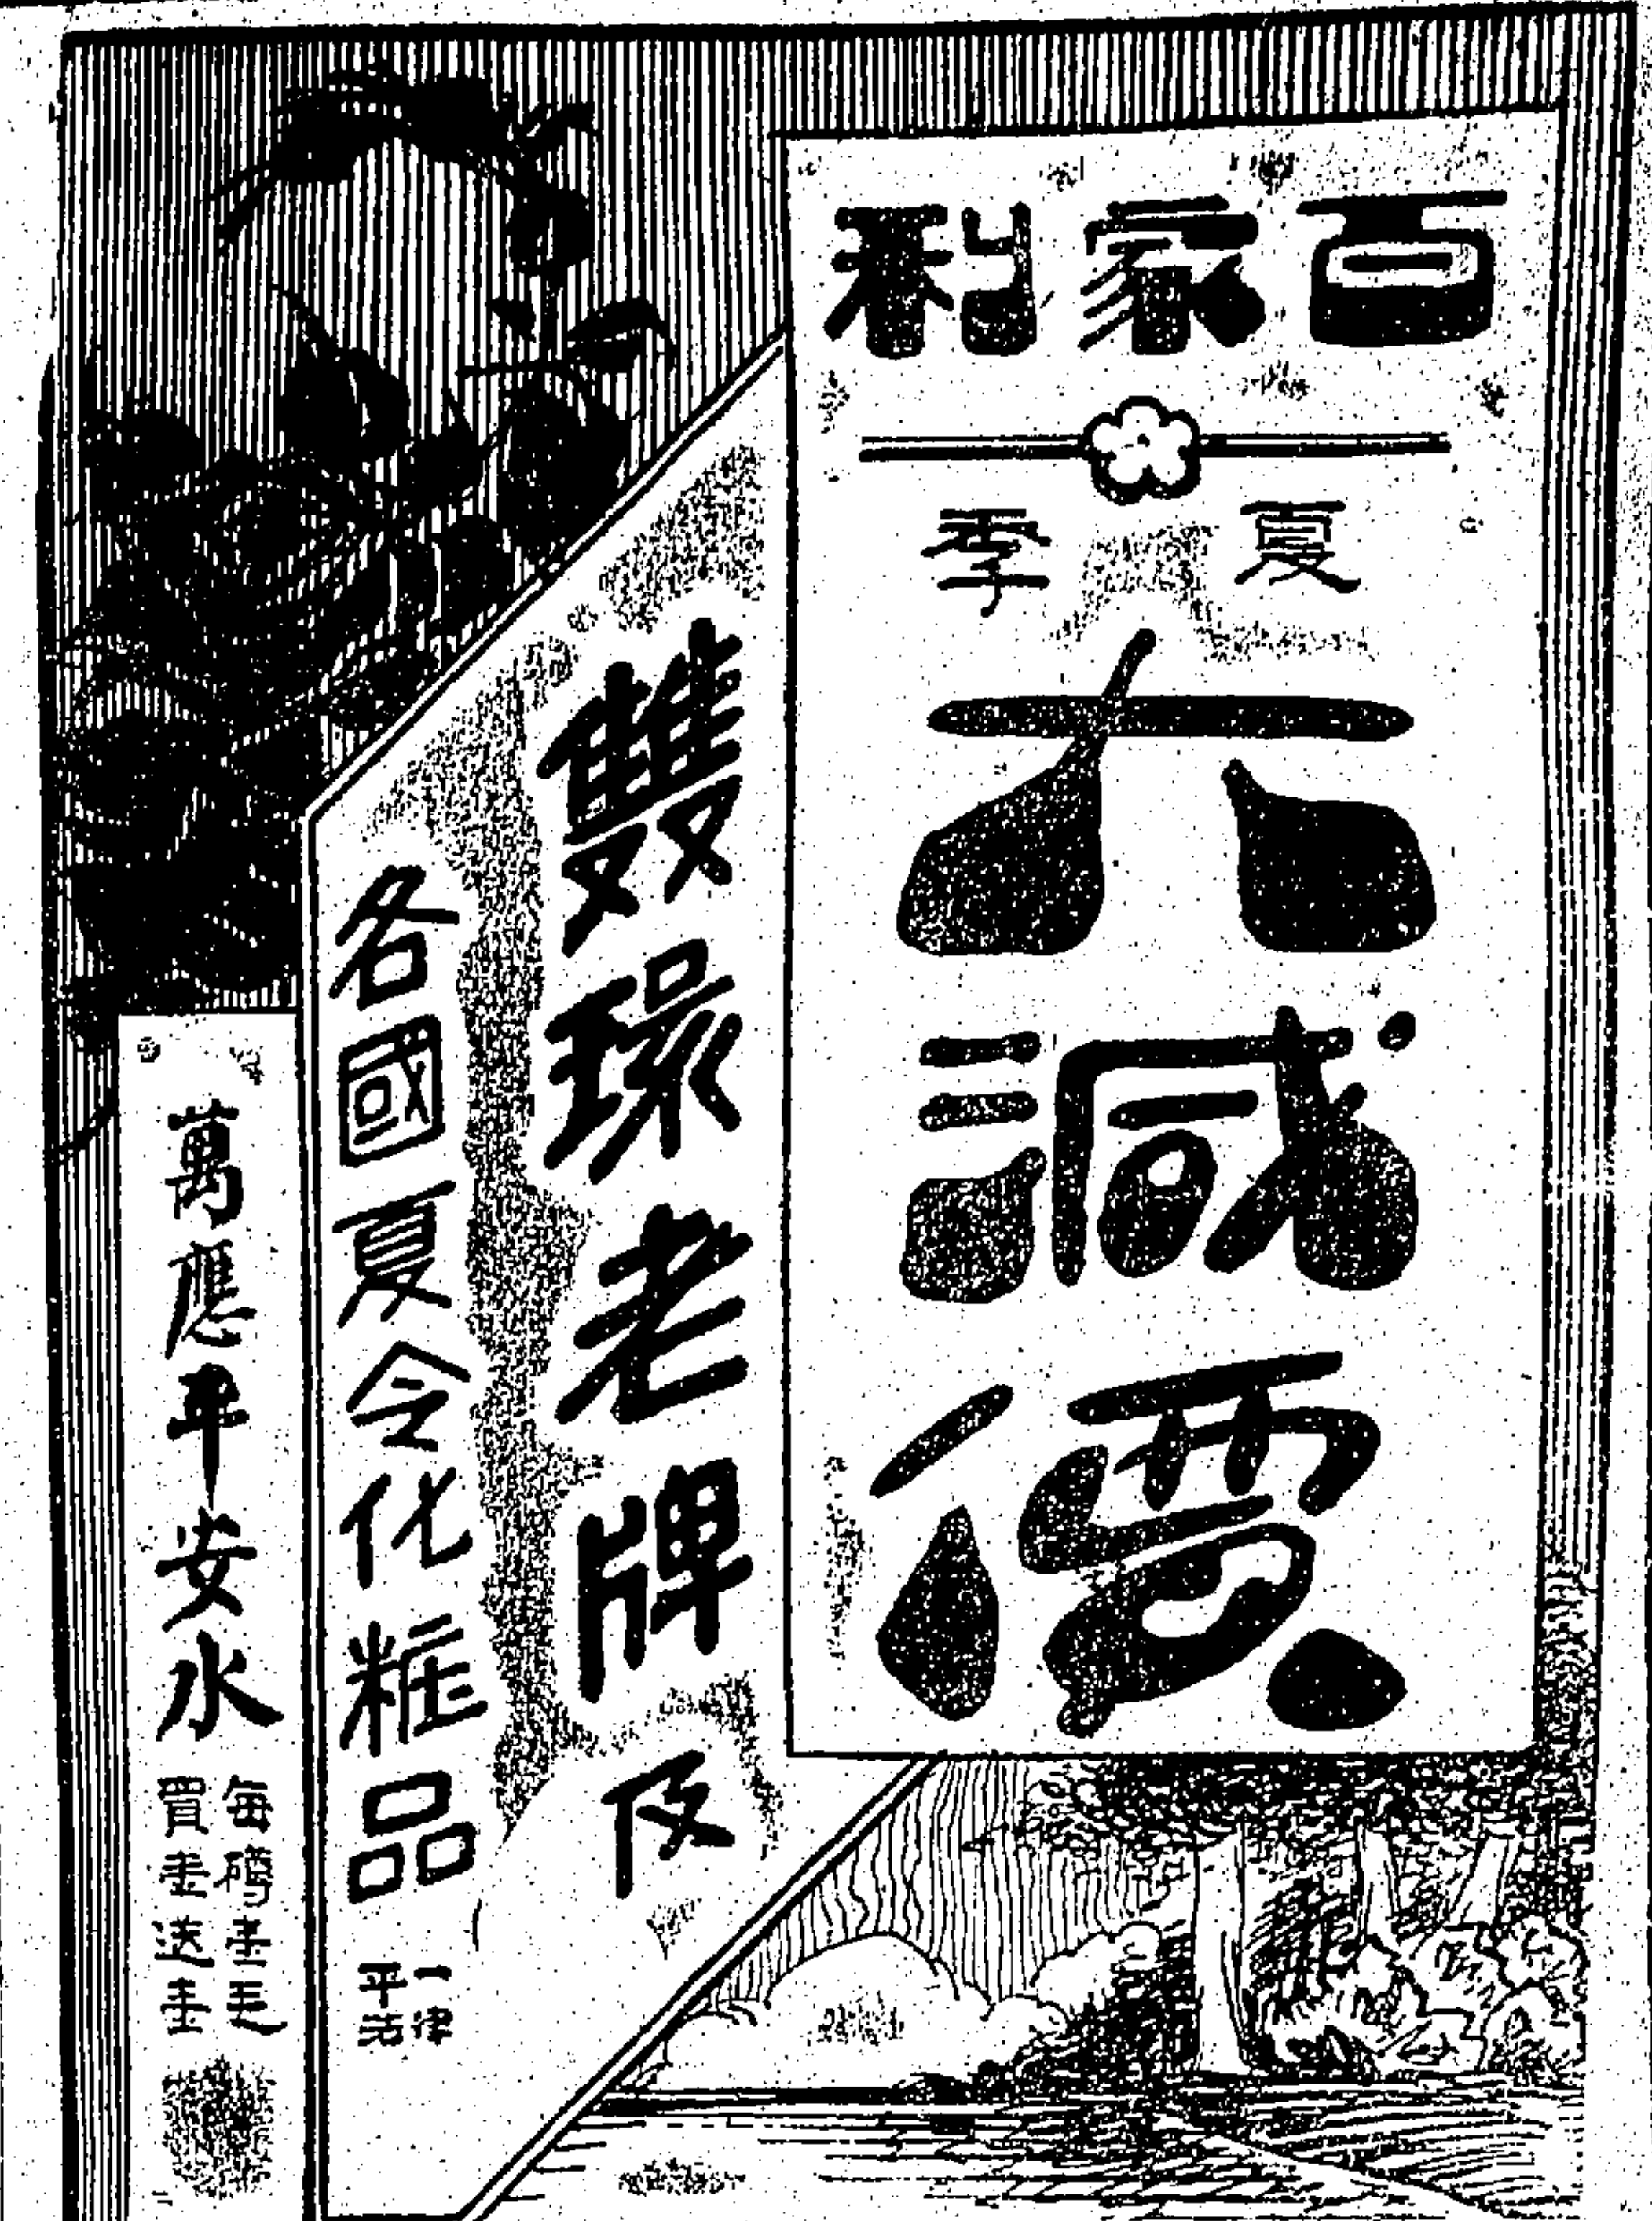 百家利
夏季
大減價
雙環老牌及
各國夏令化粧品
一律
平沽
萬應平安水
每樽壹毛
買壹送壹